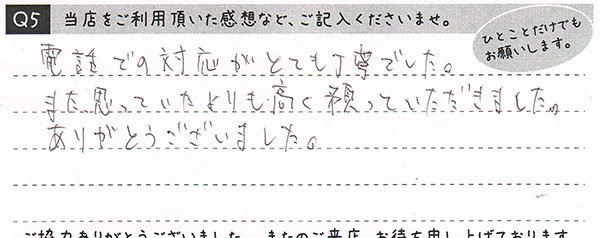 Q5 当店をご利用頂いた感想など、ご記入くださいませ。
ひとことだけでも
お願いします。
電話での対応がとても丁寧でした。
また思っていたよりも高く買っていただきました。
ありがとうございました。
ご協力ありがとうございました。またのご来店、お待ち申し上げております。